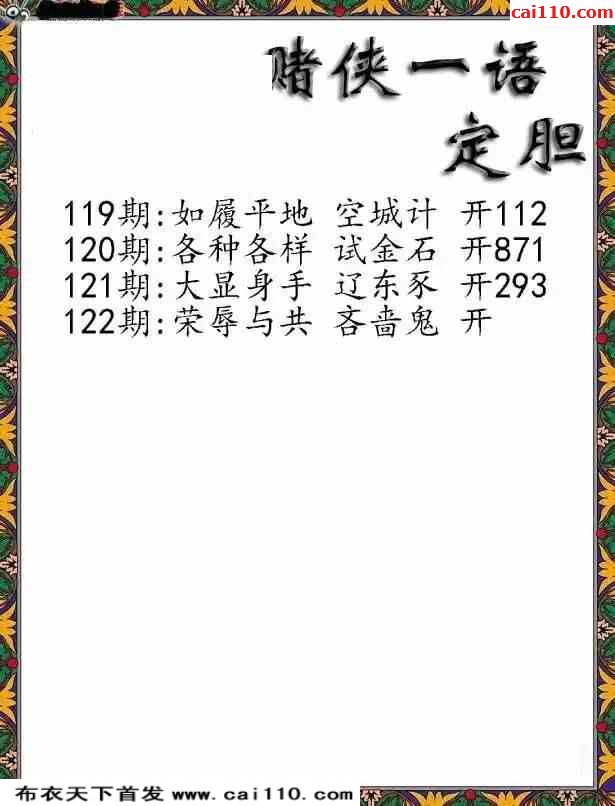 cai110.com
赌侠一语
定胆
119期:如履平地 空城计 开112
120期:各种各样 试金石 开871
121期:大显身手 辽东豕 开293
122期:荣辱与共 吝啬鬼 开
布衣天下首发 www.cai110.com